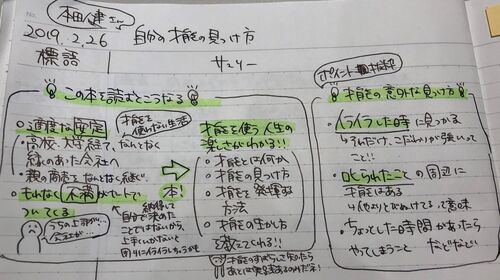 本田健さん
2019.2.26 自分の才能の見つけ方
標語 サマリー
この本を読むとこうなる
○適度な安定
才能を使わない生活
・高校、大学経て、なんとなく
縁のあった会社へ
・親の商売をなんとなく継ぐ。
○もれなく不満がセットで
ついてくる
うちの上司が…
会社が…
納得して
自分で決めた
ことではないから
上手くいかないと
周りにイライラしちゃう
本!
才能を使う人生の
楽しさがわかる!!
・才能とは何か
・才能の見つけ方
・才能を発揮する
方法
・才能の生かし方
を教えてくれる!!
ポイント
才能の意外な見つけ方
○イライラした時に見つかる
こだわりが強いって
こと!!
○叱られたことの周辺に
才能はある
人よりとびぬけてるって意味
○ちょっとした時間があったら
やってしまうこと などなど